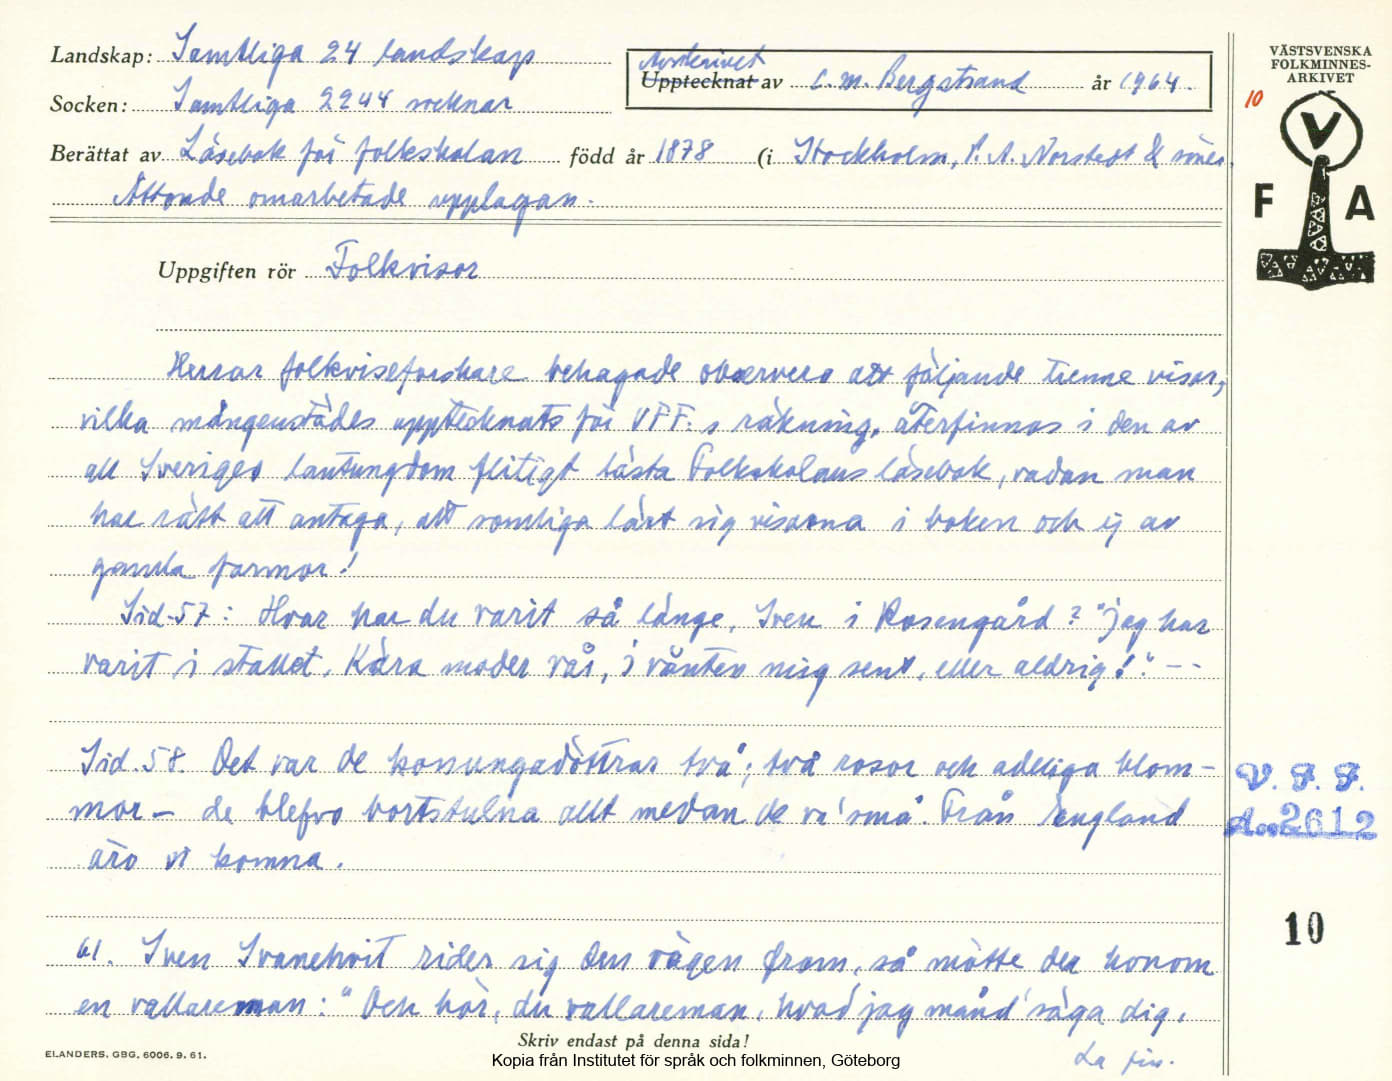 Landskap: Samtliga 24 landskap
Socken: Samtliga 2244 socknar
Avskrivet
Upptecknat av C. M. Bergstrand år 1964.
Berättat av Läsebok för folkskolan född år 1878 (i Stockholm, P. A. Norstedt & söner.
Åttonde omarbetade upplagan.
VÄSTSVENSKA
FOLKMINNES-
ARKIVET
10
V
F A
Uppgiften rör Folkvisor
Herrar folkviseforskare behagade observera att följande trenne visor,
vilka mångenstädes upptecknats för VFF:s räkning, återfinnas i den av
all Sveriges lantungdom flitigt lästa Folkskolans läsebok, vadan man
har rätt att antaga, att somliga lärt sig visorna i boken och ej av
gamla farmor!
Sid. 57: Hvar har du varit så länge, Sven i Rosengård? "jag har
varit i stallet, Kära moder vår, i vänten mig sent, eller aldrig!". - -
Sid. 58. Det var de konungadöttrar två; två rosor och adeliga blom-
mor - de blefvo bortstulna allt medan de va' små. Från England
äro vi komna.
61. Sven Svanehvit rider sig den vägen fram, så mötte der honom
en vallareman: "Och hör, du vallareman, hvad jag månd' säga dig,
V. F. F.
Acc 2612
10
Skriv endast på denna sida!
ELANDERS, GBG, 6006. 9. 61.
Kopia från Institutet för språk och folkminnen, Göteborg